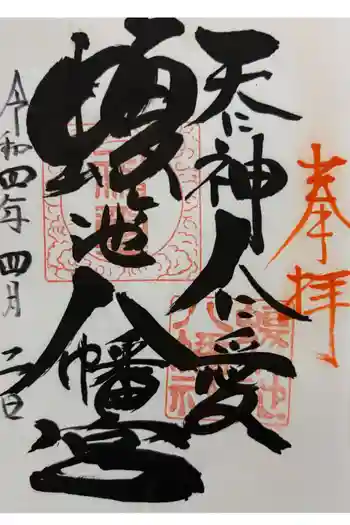 奉拝
天に神 人に愛
池八幡宮
令和四年 四月 二日